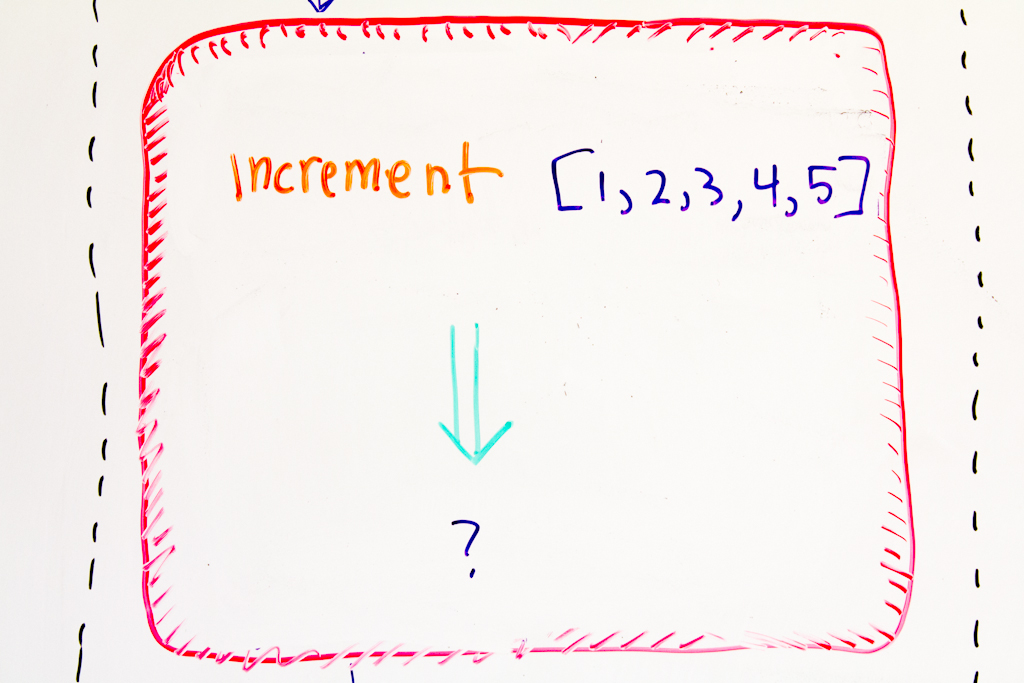 Increment [1,2,3,4,5]
?